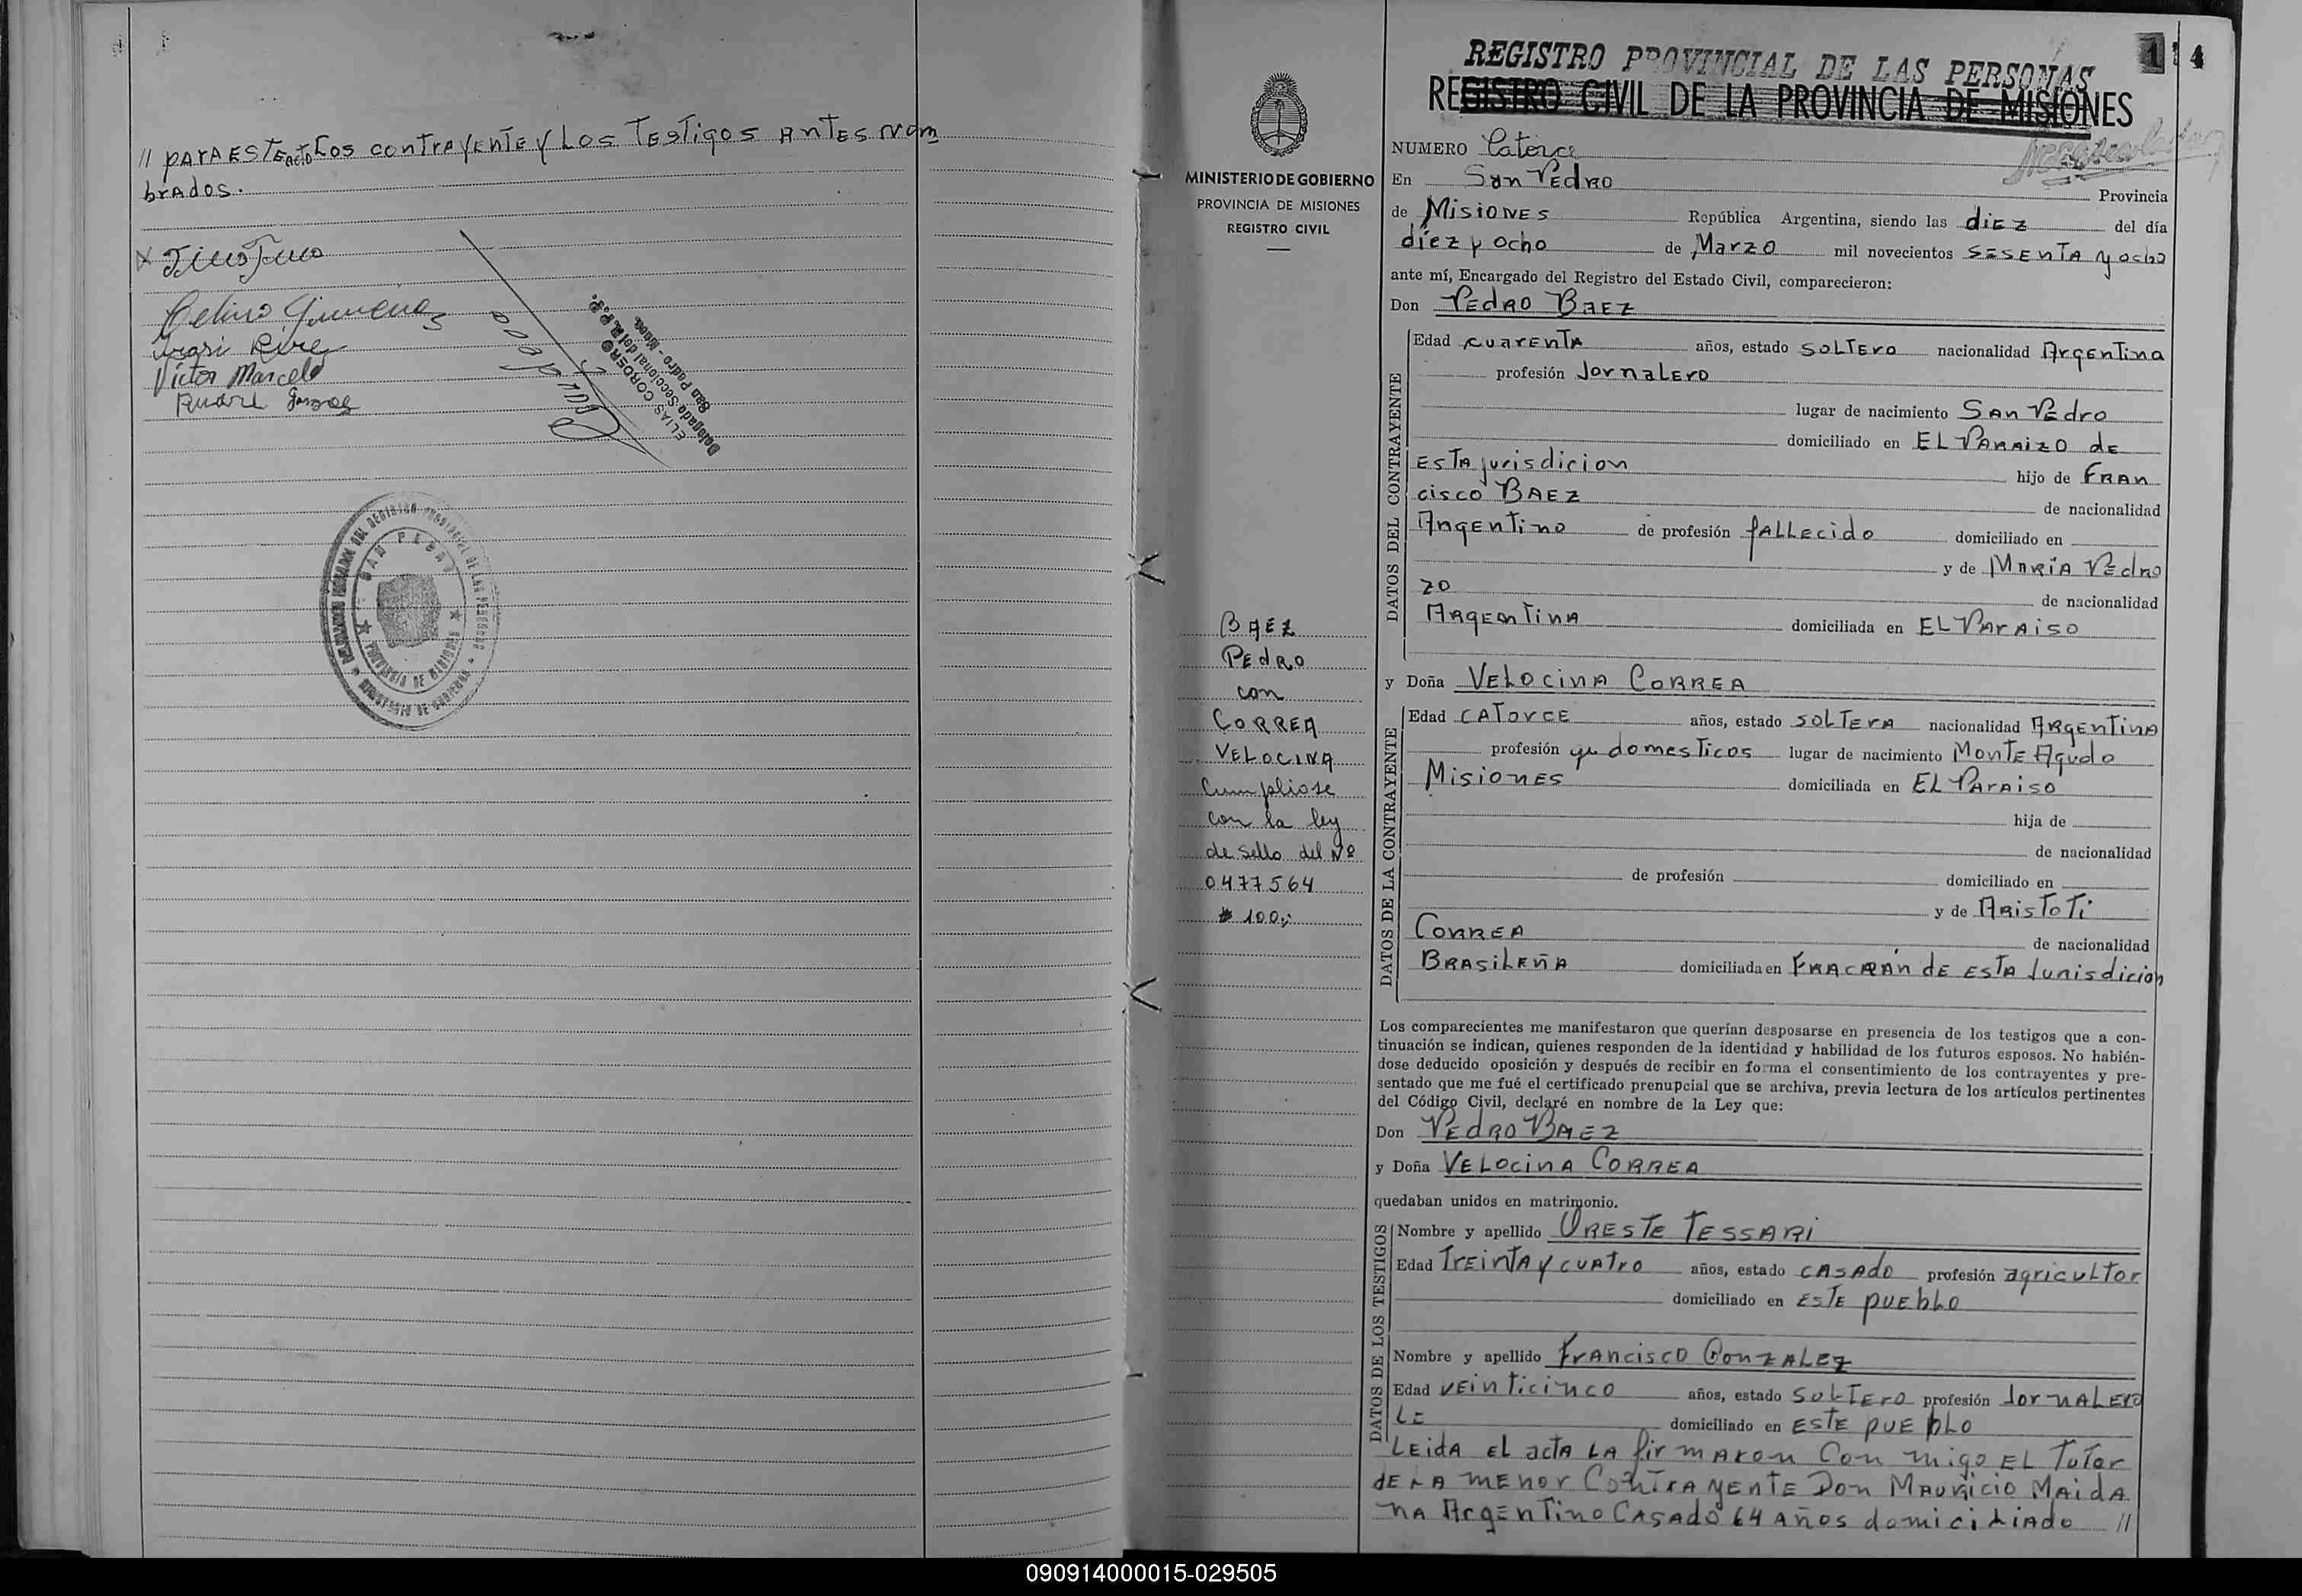 // PARA ESTE ACTO LOS CONTRAYENTE Y LOS TESTIGOS ANTES NOM
BRADOS.
Celino Gimenez
Victor Marcelo
ELIAS CORDERO
Delegado Seccional del R.P.P.
San Pedro - Mnes.
SAN PEDRO
PROVINCIA DE MISIONES
MINISTERIO DE GOBIERNO
PROVINCIA DE MISIONES
REGISTRO CIVIL
BAEZ
PEDRO
con
CORREA
VELOCINA
Cumpliose
con la ley
de sello del Nº
0477564
$ 100,-
REGISTRO PROVINCIAL DE LAS PERSONAS
14
REGISTRO CIVIL DE LA PROVINCIA DE MISIONES
NUMERO Catorce
En San Pedro Provincia
de Misiones República Argentina, siendo las diez del día
díez y ocho de Marzo mil novecientos SESENTA y ocho
ante mí, Encargado del Registro del Estado Civil, comparecieron:
Don PEDRO BAEZ
DATOS DEL CONTRAYENTE
Edad cuarenta años, estado soltero nacionalidad Argentina
profesión Jornalero
lugar de nacimiento San Pedro
domiciliado en EL PARAIZO de
Esta jurisdicion hijo de FRAN
cisco BAEZ de nacionalidad
Argentino de profesión fallecido domiciliado en
y de MARÍA Pedro
zo de nacionalidad
Argentina domiciliada en EL PARAISO
y Doña VELOCINA CORREA
DATOS DE LA CONTRAYENTE
Edad CATORCE años, estado soltera nacionalidad Argentina
profesión qu domesticos lugar de nacimiento Monte Agudo
Misiones domiciliada en EL PARAISO
hija de
de nacionalidad
de profesión domiciliado en
y de Aristoti
CORREA de nacionalidad
BRASILEÑA domiciliada en FRACRÁN de ESTA Jurisdicion
Los comparecientes me manifestaron que querían desposarse en presencia de los testigos que a con-
tinuación se indican, quienes responden de la identidad y habilidad de los futuros esposos. No habién-
dose deducido oposición y después de recibir en forma el consentimiento de los contrayentes y pre-
sentado que me fué el certificado prenupcial que se archiva, previa lectura de los artículos pertinentes
del Código Civil, declaré en nombre de la Ley que:
Don PEDRO BAEZ
y Doña VELOCINA CORREA
quedaban unidos en matrimonio.
DATOS DE LOS TESTIGOS
Nombre y apellido ORESTE TESSARI
Edad TREINTA y CUATRO años, estado CASADO profesión agricultor
domiciliado en ESTE pueblo
Nombre y apellido Francisco GONZALEZ
Edad veinticinco años, estado soltero profesión Jornalero
LE domiciliado en ESTE pueblo
LEIDA El acta LA firmaron Con migo EL Tutor
DE LA menor Contrayente Don Mauricio Maida
na Argentino Casado 64 Años domiciliado //
090914000015-029505